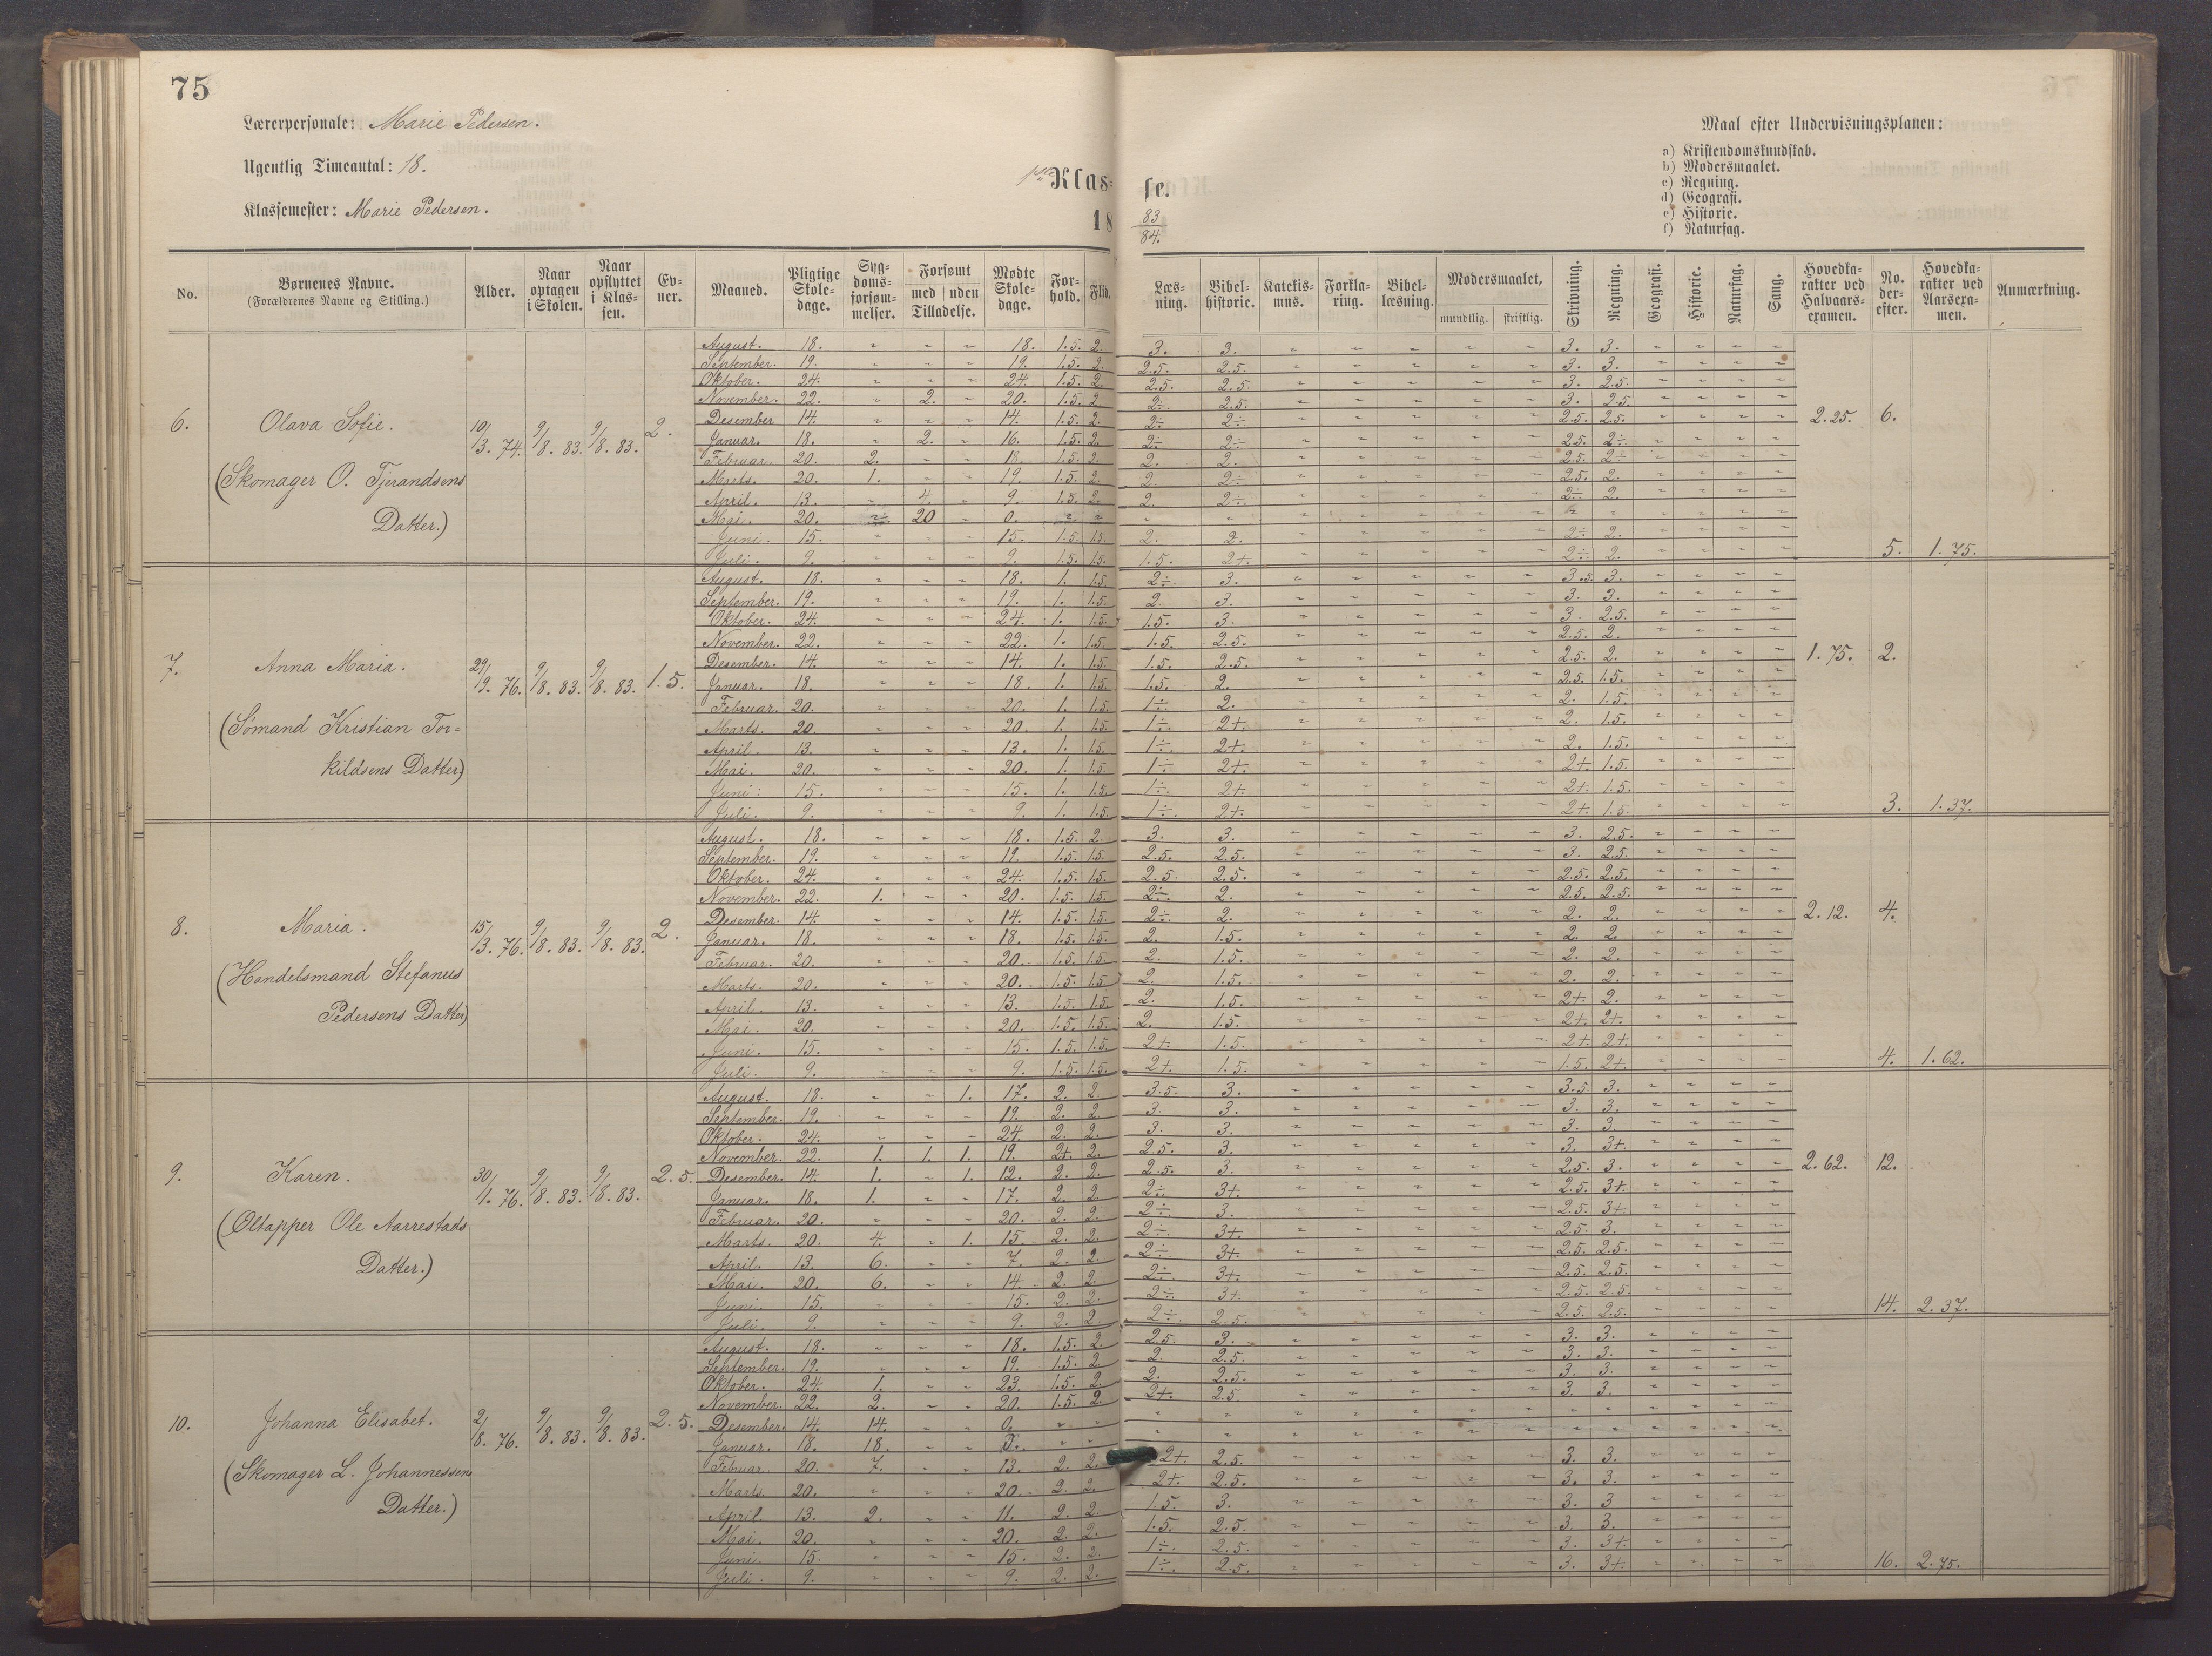 75
Lærerpersonale: Marie Pedersen.
Ugentlig Timeantal: 18.
Klassemester: Marie Pedersen.
1ste Klasse.
18 83/84.
Maal efter Undervisningsplanen:
a) Kristendomskundskab.
b) Modersmaalet.
c) Regning.
d) Geografi.
e) Historie.
f) Naturfag.
No. | Børnenes Navne. (Forældrenes Navne og Stilling.) | Alder. | Naar optagen i Skolen. | Naar opflyttet i Klassen. | Evner. | Maaned. | Pligtige Skoledage. | Sygdomsforsømmelser. | Forsømt med Tilladelse. | uden Tilladelse. | Mødte Skoledage. | Forhold. | Flid. | Læsning. | Bibelhistorie. | Katekismus. | Forklaring. | Bibellæsning. | Modersmaalet, mundtlig. | skriftlig. | Skrivning. | Regning. | Geografi. | Historie. | Naturfag. | Sang. | Hovedkarakter ved Halvaarsexamen. | No. derefter. | Hovedkarakter ved Aarsexamen. | Anmærkning.
6. Olava Sofie. (Skomager O. Tjerandsens Datter.) 10/3. 74. 9/8. 83. 9/8. 83. 2. 2.25. 6.
August. 18. " " " 18. 1.5. 2. 3. 3. " " " " " 3. 3. " " " "
September. 19. " " " 19. 1.5. 2. 2.5. 2.5. " " " " " 3. 3. " " " "
Oktober. 24. " " " 24. 1.5. 2. 2.5. 2.5. " " " " " 3. 2.5. " " " "
November. 22. " 2. " 20. 1.5. 2 2÷. 2.5. " " " " " 3. 2.5. " " " "
Desember 14. " " " 14. 1.5. 2. 2÷ 2÷ " " " " " 2.5. 2.5. " " " "
Januar. 18. " 2. " 16. 1.5. 2. 2÷ 2÷ " " " " " 2.5. 2÷ " " " "
Februar. 20. 2. " " 18. 1.5. 2. 2. 2. " " " " " 2.5. 2÷ " " " "
Marts. 20. 1. " " 19. 1.5. 2. 2. 2÷ " " " " " 2.5. 2. " " " "
April. 13. " 4. " 9. 1.5. 2. 2. 2÷ " " " " " 2÷ 2. " " " "
Mai. 20. " 20 " 0. " " " " " " " " " " " " " " "
Juni. 15. " " " 15. 1.5. 1.5. 2. 2. " " " " " 2÷ 2. " " " "
Juli. 9. " " " 9. 1.5. 1.5. 1.5. 2+. " " " " " 2÷ 2. " " " " 5. 1.75.
7. Anna Maria. (Sømand Kristian Torkildsens Datter) 29/9. 76. 9/8. 83. 9/8. 83. 1.5. 1.75. 2.
August. 18. " " " 18. 1. 1.5 2÷. 3. " " " " " 3.5. 3. " " " "
September. 19. " " " 19. 1. 1.5. 2. 3. " " " " " 3. 3. " " " "
Oktober. 24. " " " 24. 1. 1.5. 1.5. 3. " " " " " 3. 2.5. " " " "
November. 22. " " " 22. 1. 1.5. 1.5. 2.5. " " " " " 2.5. 2. " " " "
Desember. 14. " " " 14. 1. 1.5. 1.5. 2.5. " " " " " 2.5. 2. " " " "
Januar. 18. " " " 18. 1. 1.5. 1.5. 2. " " " " " 2.5. 1.5. " " " "
Februar. 20. " " " 20. 1. 1.5. 1÷. 2. " " " " " 2. 1.5. " " " "
Marts. 20. " " " 20. 1. 1.5. 1÷. 2+. " " " " " 2. 1.5. " " " "
April. 13. " " " 13. 1. 1.5. 1÷. 2+. " " " " " 2. 1.5. " " " "
Mai. 20. " " " 20. 1. 1.5. 1÷ 2+. " " " " " 2+. 1.5. " " " "
Juni. 15. " " " 15. 1. 1.5. 1÷. 2+. " " " " " 2+. 1.5. " " " "
Juli. 9. " " " 9. 1. 1.5. 1÷ 2+. " " " " " 2+. 1.5. " " " " 3. 1.37.
8. Maria. (Handelsmand Stefanus Pedersens Datter) 15/3. 76. 9/8. 83. 9/8. 83. 2. 2.12. 4.
August. 18. " " " 18. 1.5. 2. 3. 3. " " " " " 3. 2.5. " " " "
September. 19. " " " 19. 1.5. 1.5. 2.5. 2.5. " " " " " 3. 2.5. " " " "
Oktober. 24. " " " 24. 1.5. 1.5. 2.5. 2.5. " " " " " 2.5. 2.5. " " " "
November. 22. 1. " " 20. 1.5. 1.5. 2÷. 2. " " " " " 2.5. 2.5. " " " "
Desember. 14. " " " 14. 1.5. 1.5. 2÷. 2. " " " " " 2. 2. " " " "
Januar. 18. " " " 18. 1.5. 1.5. 2. 1.5. " " " " " 2. 2. " " " "
Februar. 20. " " " 20. 1.5. 1.5 2. 1.5. " " " " " 2. 2. " " " "
Marts. 20. " " " 20. 1.5. 1.5 2. 1.5. " " " " " 2. 2. " " " "
April. 13. " " " 13. 1.5. 1.5. 2. 1.5. " " " " " 2+. 2. " " " "
Mai. 20. " " " 20. 1.5. 1.5. 2. 1.5. " " " " " 2+. 2+. " " " "
Juni. 15. " " " 15. 1.5. 1.5. 2+. 1.5. " " " " " 2+. 2+. " " " "
Juli. 9. " " " 9. 1.5. 1.5. 2+. 1.5. " " " " " 1.5. 2+. " " " " 4. 1.62.
9. Karen. (Øltapper Ole Aarrestads Datter.) 30/1. 76. 9/8. 83. 9/8. 83. 2.5. 2.62. 12.
August. 18. " " 1. 17. 2. 2. 3.5. 3. " " " " " 3.5. 3. " " " "
September. 19. " " " 19. 2. 2 3. 3. " " " " " 3. 3. " " " "
Oktober. 24. " " " 24. 2. 2. 3. 3. " " " " " 3. 3. " " " "
November. 22. 1. 1. 1. 19. 2+. 2. 2.5. 3. " " " " " 3. 3+. " " " "
Desember. 14. 1. " 1. 12. 2. 2. 2.5. 3. " " " " " 2.5. 3. " " " "
Januar. 18. 1. " " 17. 2. 2. 2÷. 3+. " " " " " 2.5. 3+. " " " "
Februar. 20. " " " 20. 2. 2. 2÷. 3. " " " " " 2.5. 3+. " " " "
Marts. 20. 4. " 1. 15. 2. 2. 2÷. 3+. " " " " " 2.5. 3. " " " "
April. 13. 6. " " 7. 2. 2. 2÷. 3+. " " " " " 2.5. 2.5. " " " "
Mai. 20. 6. " " 14. 2. 2. 2÷. 3+. " " " " " 2.5. 2.5. " " " "
Juni. 15. " " " 15. 2. 2. 2÷. 3+. " " " " " 2.5. 2.5. " " " "
Juli. 9. " " " 9. 2. 2. 2÷. 2.5. " " " " " 2.5. 2.5. " " " " 14. 2.37.
10. Johanna Elisabet. (Skomager L. Johannessens Datter.) 2/8. 76. 9/8. 83. 9/8. 83. 2.5.
August. 18. " " " 18. 1.5. 2. 2.5. 3. " " " " " 3. 3. " " " "
September. 19. " " " 19. 1.5. 2 2. 2.5. " " " " " 3. 3. " " " "
Oktober. 24. 1. " " 23. 1.5. 2. 2. 2.5. " " " " " 3. 3. " " " "
November. 22. 2. " " 20. 1.5. 2 2+. 2.5 " " " " " 3. 3. " " " "
Desember. 14. 14. " " 0. " " " " " " " " " " " " " " "
Januar. 18. 18. " " 0. " " " " " " " " " " " " " " "
Februar. 20. 7. " " 13. 2. 2. 2+. 2.5. " " " " " 3. 3. " " " "
Marts. 20. " " " 20. 2. 2. 2+. 2.5. " " " " " 3. 3. " " " "
April. 13. 2. " " 11. 2. 2. 1.5. 3. " " " " " 3. 3 " " " "
Mai. 20. " " " 20. 2. 2. 1.5. 2.5. " " " " " 3. 3. " " " "
Juni. 15. " " " 15. 2. 2. 1÷. 2.5. " " " " " 3. 3+. " " " "
Juli. 9. " " " 9. 2. 2. 1÷. 2.5. " " " " " 3. 3+. " " " " 16. 2.75.